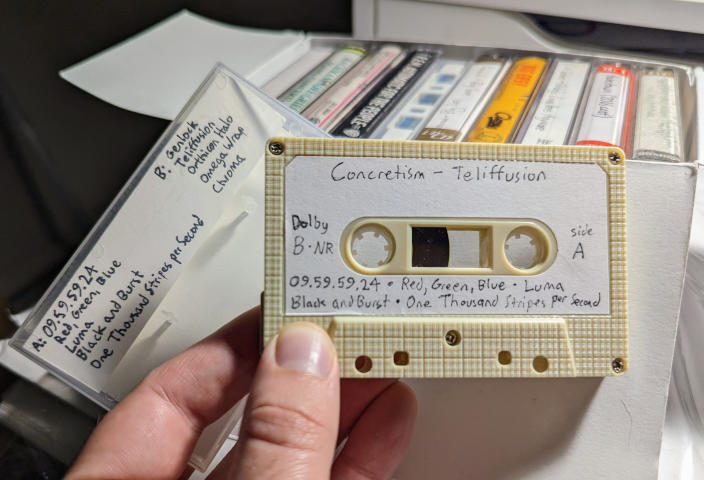 Concretism - Teliffusion
Dolby
B-NR
side
A
09.59.59.24 • Red, Green, Blue • Luma
Black and Burst • One Thousand Stripes per Second
B: Genlock
Teliffusion
Orthicon Halo
Omega Wrap
Chroma
A: 09.59.59.24
Red, Green, Blue
Luma
Black and Burst
One Thousand Stripes per Second